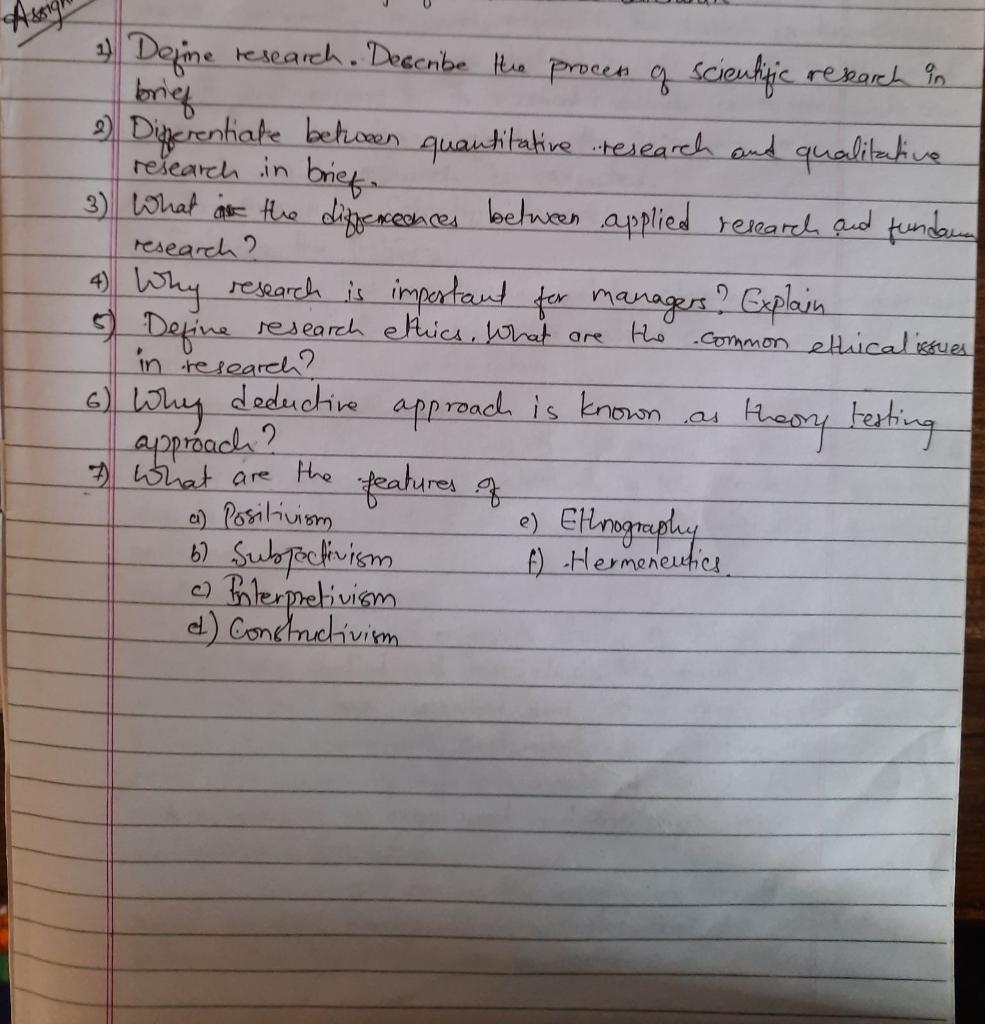 Assign
1) Define research. Describe the process of scientific research in
brief
2) Differentiate between quantitative research and qualitative
research in brief.
3) What the differences between applied research and fundam
research?
4) Why research is important for managers? Explain
5) Define research ethics. What are the common ethical issues
in research?
6) Why deductive approach is known as theory testing
approach?
7) What are the features of
a) Positivism
e) Ethnography
b) Subjectivism
f) Hermeneutics.
c) Interpretivism
d) Constructivism